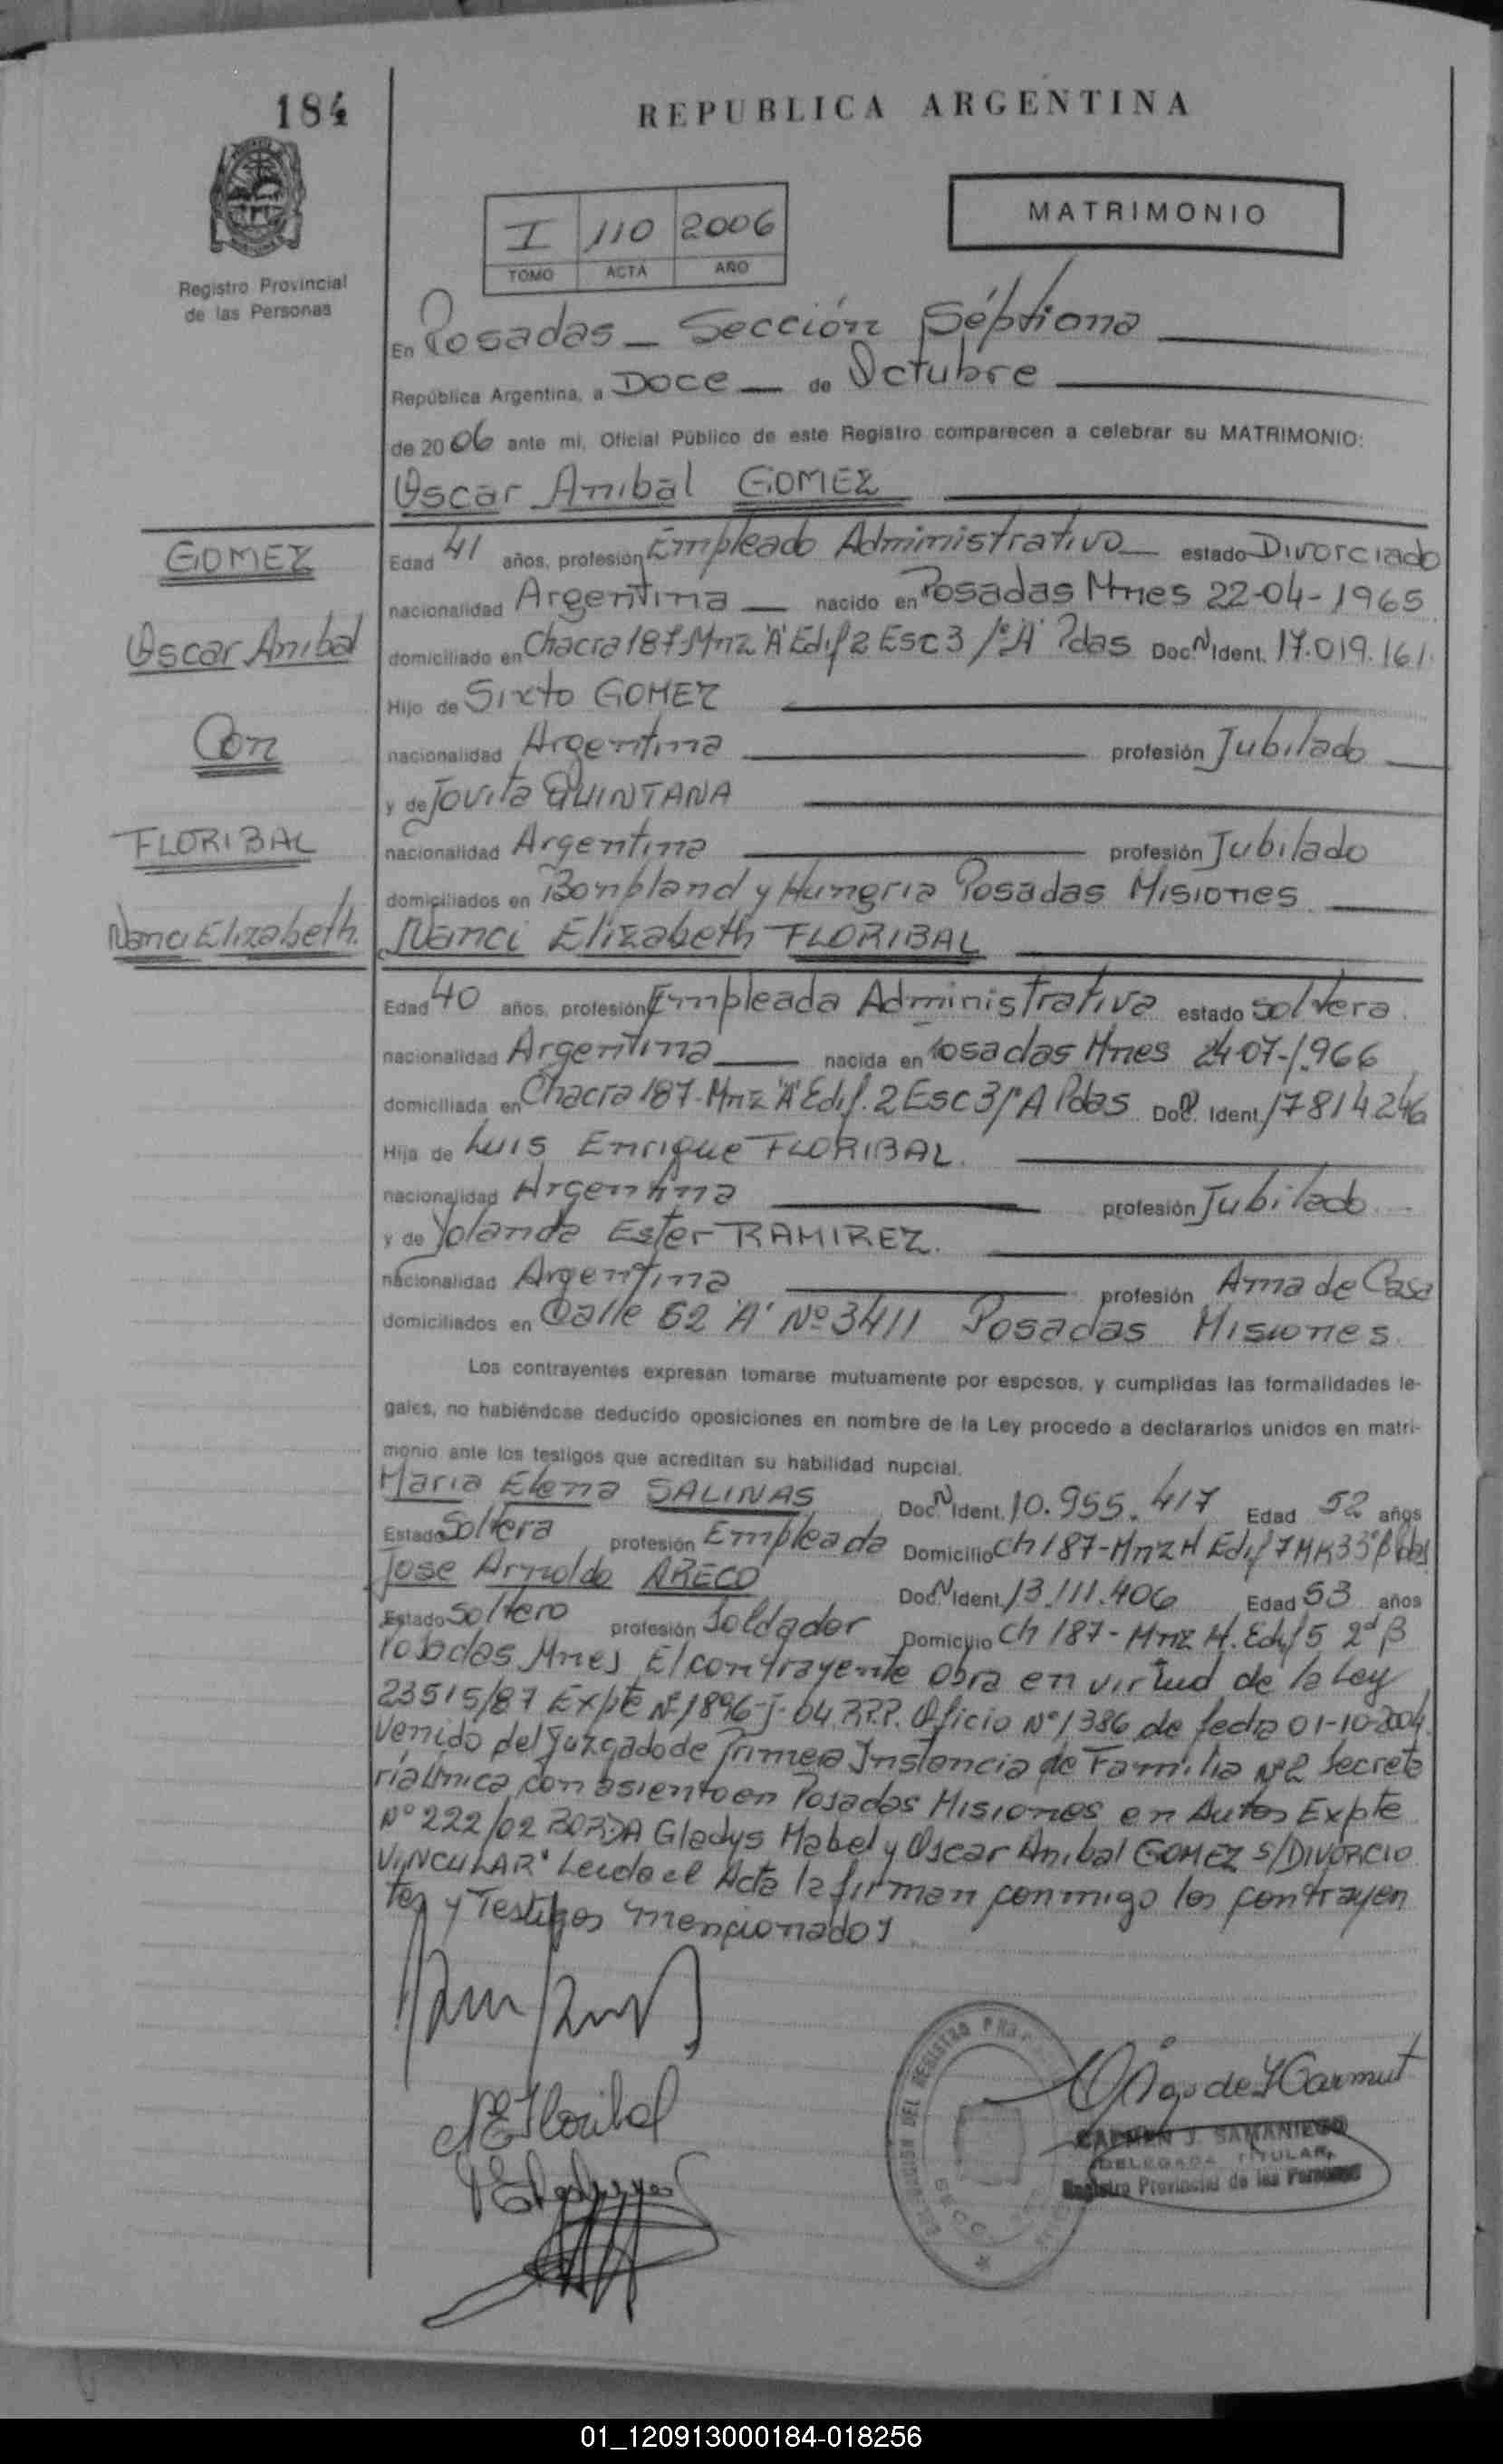 184
REPUBLICA ARGENTINA
Registro Provincial
de las Personas
I 110 2006
TOMO ACTA AÑO
MATRIMONIO
En Posadas - Sección Séptiona
República Argentina, a Doce de Octubre
de 2006 ante mi, Oficial Público de este Registro comparecen a celebrar su MATRIMONIO:
Oscar Anibal GOMEZ
GOMEZ
Oscar Anibal
Con
FLORIBAL
Nanci Elizabeth.
Edad 41 años, profesión Empleado Administrativo estado Divorciado
nacionalidad Argentina nacido en Posadas Mnes 22-04-1965
domiciliado en Chacra 187 Mnz "A" Edif 2 Esc 3 1º"A" Pdas Doc. N Ident. 17.019.161.
Hijo de Sixto GOMEZ
nacionalidad Argentina profesión Jubilado
y de Jovita QUINTANA
nacionalidad Argentina profesión Jubilado
domiciliados en Bonpland y Hungria Posadas Misiones
Nanci Elizabeth FLORIBAL
Edad 40 años, profesión Empleada Administrativa estado soltera.
nacionalidad Argentina nacida en Posadas Mnes 24-07-1.966
domiciliada en Chacra 187-Mnz "A" Edif. 2 Esc 3 1º A Pdas Doc. Ident. 17814246
Hija de Luis Enrique FLORIBAL.
nacionalidad Argentina profesión Jubilado
y de Yolanda Ester RAMIREZ.
nacionalidad Argentina profesión Ama de Casa
domiciliados en Calle 62 "A" Nº 3411 Posadas Misiones.
Los contrayentes expresan tomarse mutuamente por esposos, y cumplidas las formalidades le-
gales, no habiéndose deducido oposiciones en nombre de la Ley procedo a declararlos unidos en matri-
monio ante los testigos que acreditan su habilidad nupcial.
Maria Elena SALINAS Doc. N Ident. 10.955.417 Edad 52 años
Estado Soltera profesión Empleada Domicilio Ch 187-Mnz H Edif 7
Jose Arnoldo ARECO Doc. N Ident. 13.111.406 Edad 53 años
Estado Soltero profesión Soldador Domicilio Ch 187-Mnz H. Edif 5 2º B
Posadas Mnes. El contrayente obra en virtud de la Ley
23515/87 Expte Nº 1896-J-04 R.P.P. Oficio Nº 1386 de fecha 01-10-2004.
venido del Juzgado de Primera Instancia de Familia Nº 2 Secreta
ría Única, con asiento en Posadas Misiones en Autos Expte
Nº 222/02 BORDA Gladys Mabel y Oscar Anibal GOMEZ S/DIVORCIO
VINCULAR" Leida el Acta la firman conmigo los contrayen
tes y Testigos mencionados
N E Floribal
CARMEN J. SAMANIEGO
DELEGADA TITULAR
Registro Provincial de las Personas
01_120913000184-018256